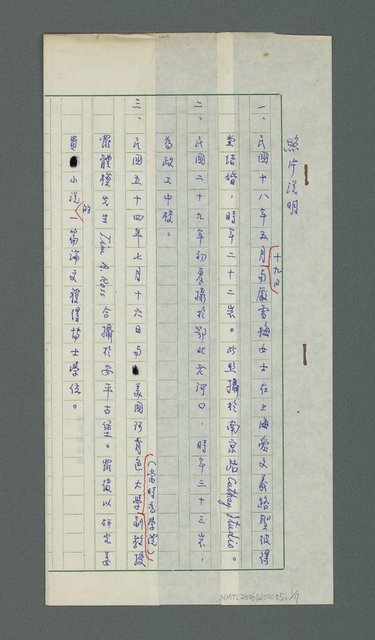 照片說明
一、民國十八年五月十九日與嚴雪梅女士在上海愛文義路聖彼得
堂結婚，時年二十二歲。此照攝於南京路Cathay Studio。
二、民國二十九年初夏攝於鄂北老河口，時年三十三歲，
為政工中校。
三、民國五十四年七月十六日與美國阿肯色大學（當時為學院）副教授
羅體模先生Tim A. Ross合攝於安平古堡。羅後以研究姜
貴的小說一篇論文獲得博士學位。
NMTL20050200005-1/1